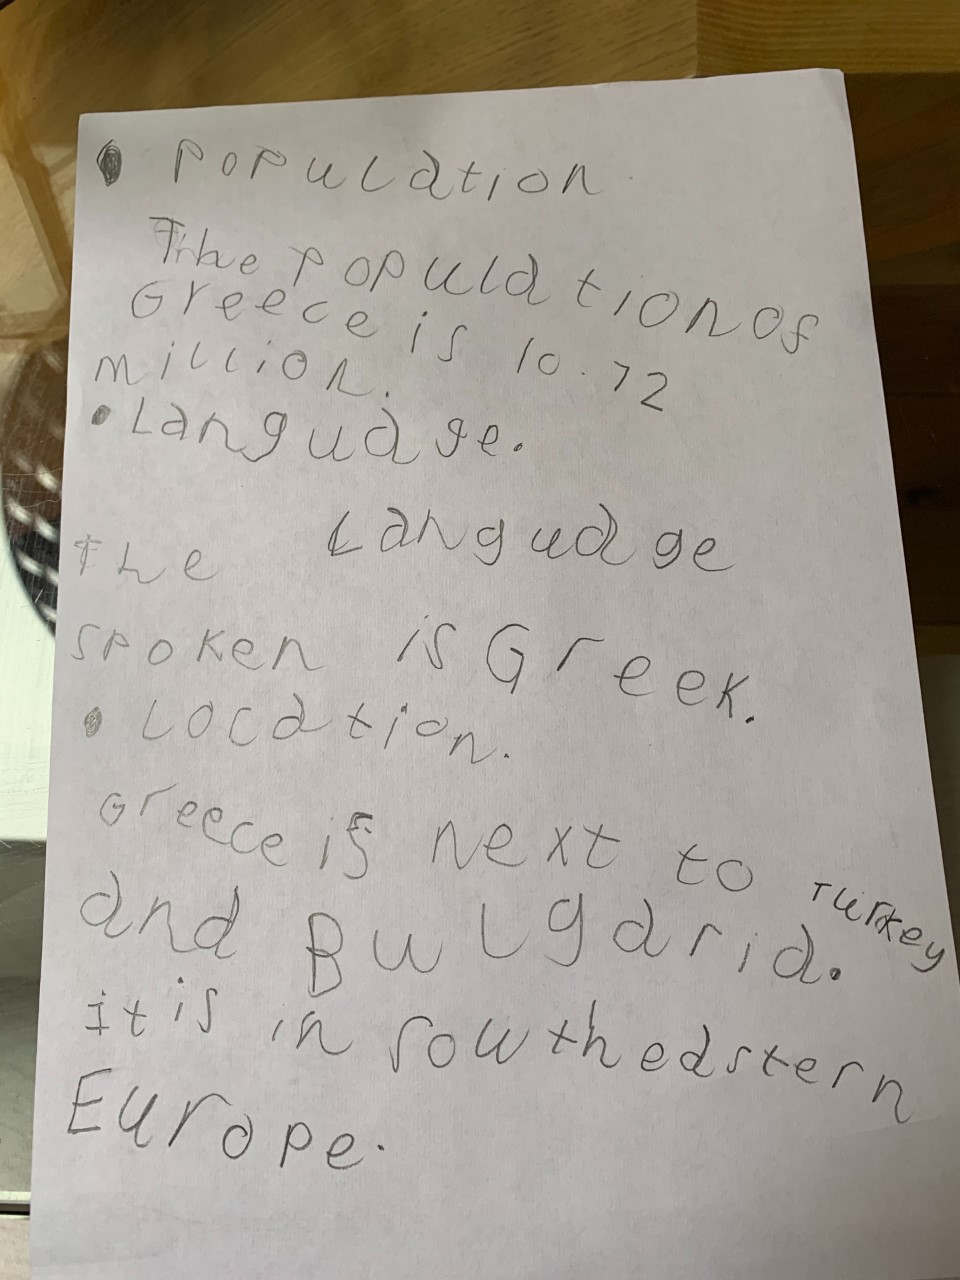 • Population
The population of
Greece is 10.72
million.
• Language.
The Language
spoken is Greek.
• Location.
Greece is next to Turkey
and Bulgaria.
It is in southeastern
Europe.